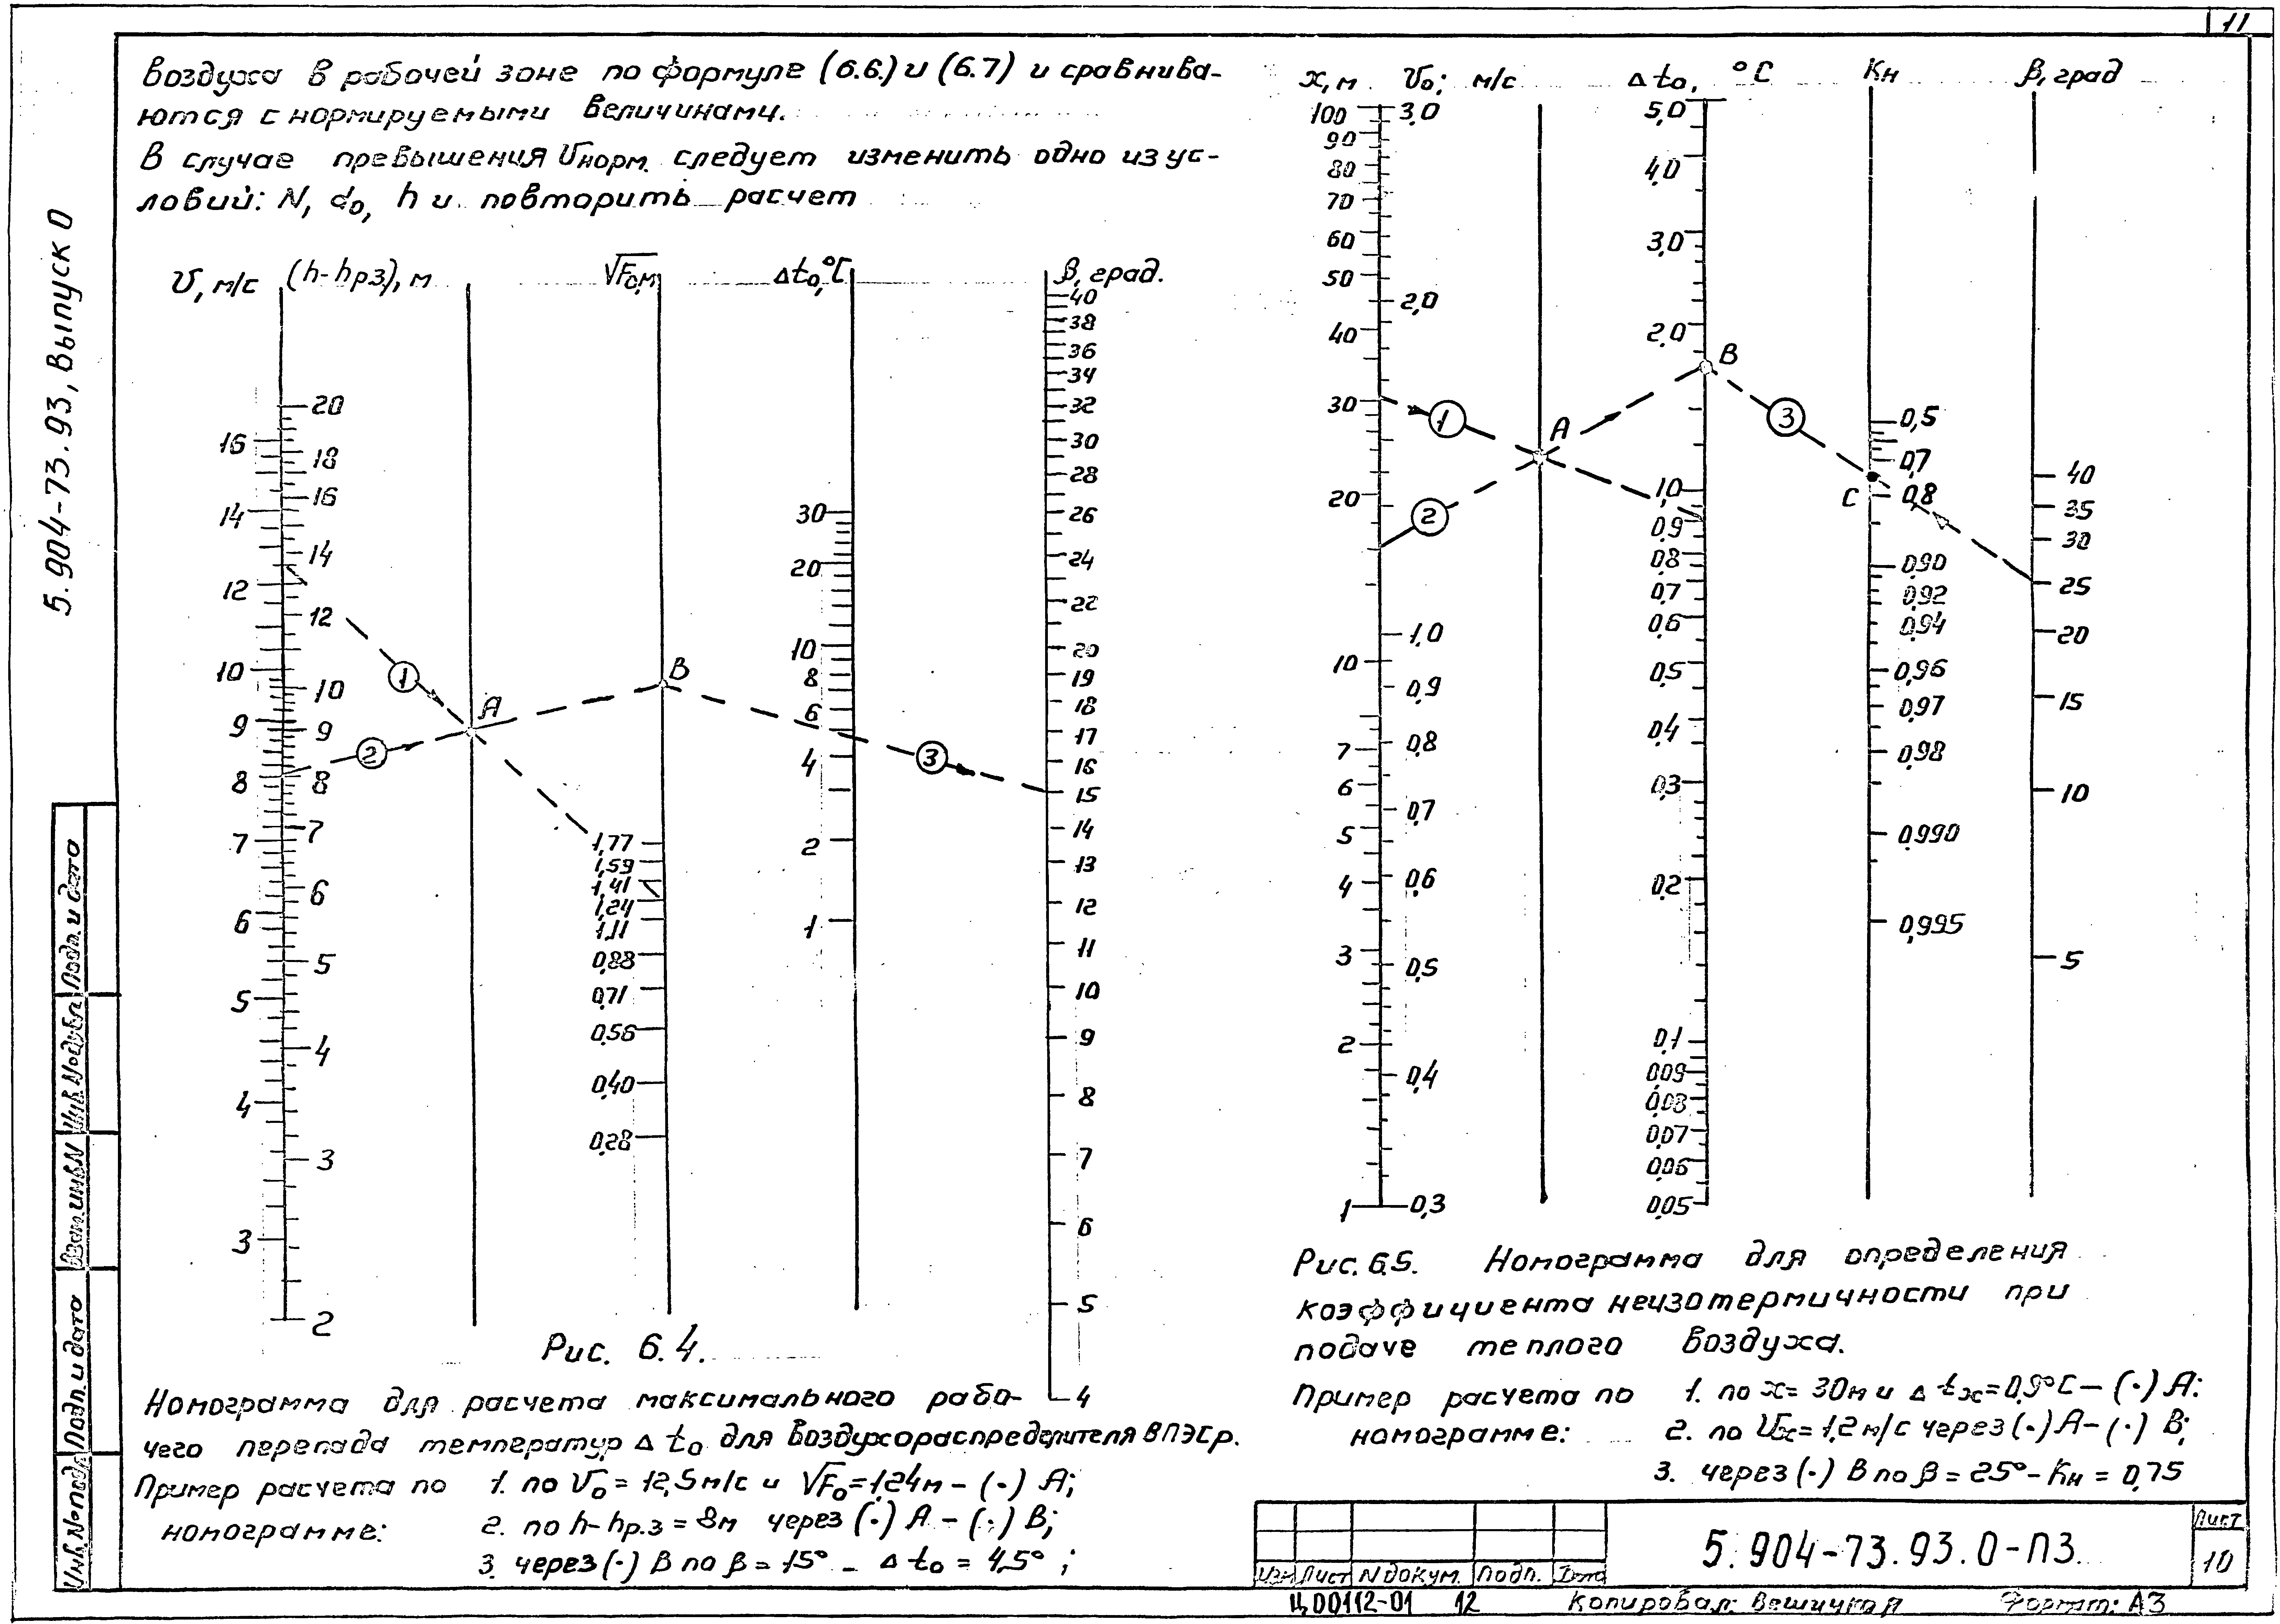 11
воздуха в рабочей зоне по формуле (6.6.) и (6.7) и сравнива-
ются с нормируемыми величинами.
В случае превышения Vнорм. следует изменить одно из ус-
ловий: N, d₀, h и повторить расчет
5.904-73.93, Выпуск 0
V, м/с (h-hр.з), м √F₀,м Δt₀,°C β, град.
20
18
16
14
12
10
9
8
7
6
5
4
3
2
16
14
12
10
9
8
7
6
5
4
3
1
2
3
A
B
1,77
1,59
1,41
1,24
1,11
0,88
0,71
0,56
0,40
0,28
30
20
10
8
6
4
2
1
40
38
36
34
32
30
28
26
24
22
20
19
18
17
16
15
14
13
12
11
10
9
8
7
6
5
4
Рис. 6.4.
Номограмма для расчета максимального рабо-
чего перепада температур Δt₀ для воздухораспределителя ВПЭСр.
Пример расчета по 1. по V₀ = 12,5м/с и √F₀=1,24м – (·) A;
номограмме: 2. по h-hр.з = 8м через (·) A – (·) B;
3. через (·) B по β = 15° – Δt₀ = 4,5° ;
x, м V₀; м/с Δt₀, °C Kн β, град
100
90
80
70
60
50
40
30
20
10
7
6
5
4
3
2
1
3,0
2,0
1,0
0,9
0,8
0,7
0,6
0,5
0,4
0,3
1
2
3
A
B
C
5,0
4,0
3,0
2,0
1,0
0,9
0,8
0,7
0,6
0,5
0,4
0,3
0,2
0,1
0,09
0,08
0,07
0,06
0,05
0,5
0,7
0,8
0,90
0,92
0,94
0,96
0,97
0,98
0,990
0,995
40
35
30
25
20
15
10
5
Рис. 6.5. Номограмма для определения
коэффициента неизотермичности при
подаче теплого воздуха.
Пример расчета по 1. по x= 30м и Δtx=0,9°C – (·) A:
номограмме: 2. по Vx=1,2м/с через (·) A – (·) B;
3. через (·) B по β = 25° - Kн = 0,75
Инв.№ подл. Подп. и дата Взам.инв.N Инв.№дубл. Подп. и дата
Изм Лист N докум. Подп. Дата
5.904-73.93.0-ПЗ
Лист
10
Ц00112-01 12 Копировал: Вешицкая Формат: А3